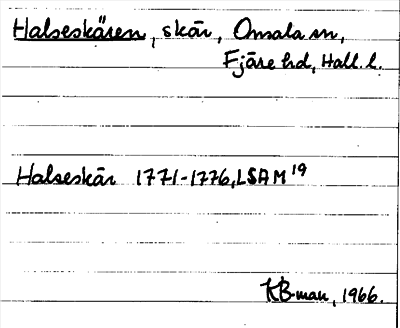 Halseskären, skär, Onsala sn,
Fjäre hd, Hall. l.
Halseskär 1771-1776, LSAM 19
KB-man, 1966.